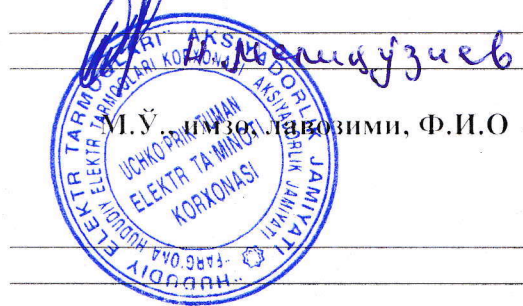 М.Ў., имзо, лавозими, Ф.И.О
"HUDUDIY ELEKTR TARMOQLARI" AKSIYADORLIK JAMIYATI
"FARG'ONA HUDUDIY ELEKTR TARMOQLARI KORXONASI" AKSIYADORLIK JAMIYATI
UCHKO'PRIK TUMAN
ELEKTR TA'MINOTI
KORXONASI